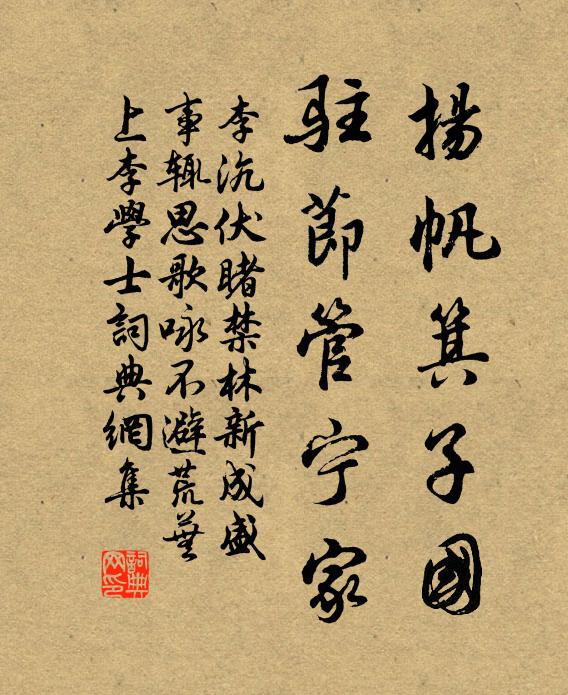 揚帆箕子國
駐節管宁家
李沆伏睹禁林新成盛
事辄思歌咏不避荒蕪
上李學士詞典網集
詞典
网印